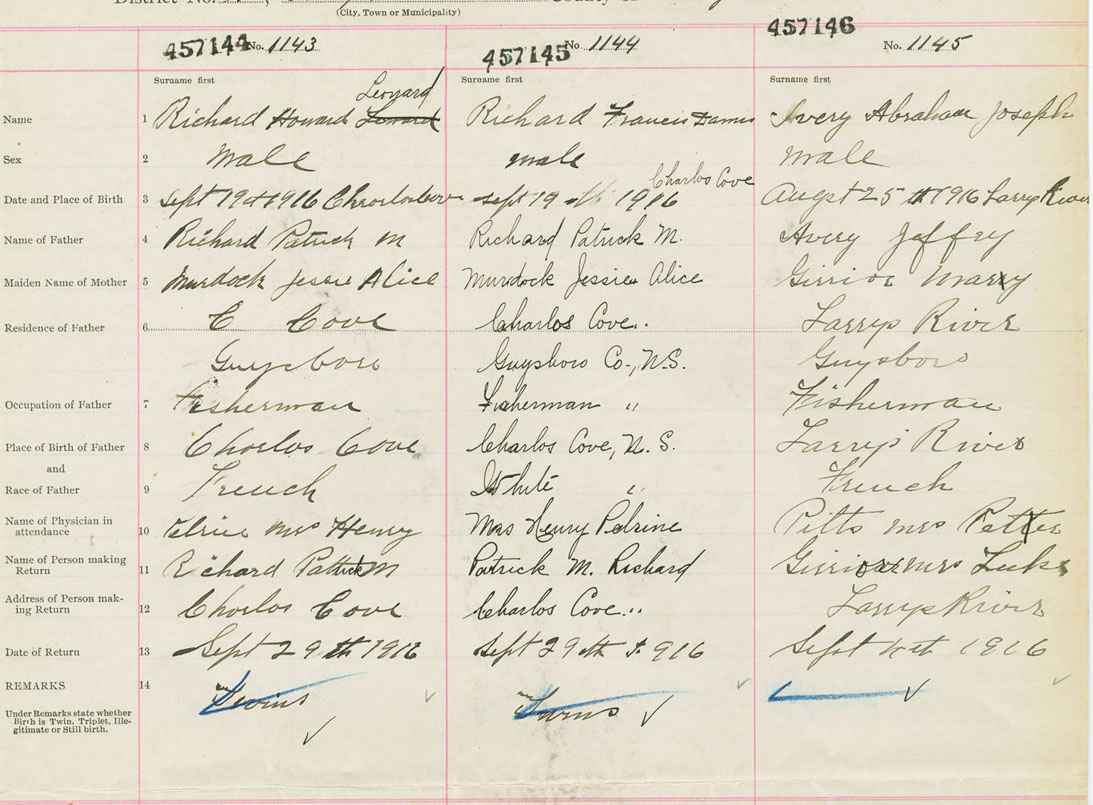 District No.
(City, Town or Municipality)
457144 No. 1143 457145 No 1144 457146 No. 1145
Surname first Surname first Surname first
Leonard
Name 1 Richard Howard Lenard Richard Francis Avery Abraham Joseph
Sex 2 male male male
Charlos Cove
Date and Place of Birth 3 Sept 19 1916 sept 19 th 1916 Augst 25 th 1916 Larrys River
Name of Father 4 Richard Patrick M Richard Patrick M. Avery Jeffry
Maiden Name of Mother 5 Murdock Jessie Alice Murdock Jessie Alice Girrior Marry
Residence of Father 6 C Cove Charlos Cove.. Larrys River
Guysboro Guysboro Co., N.S. Guysboro
Occupation of Father 7 Fisherman Fisherman " Fisherman
Place of Birth of Father 8 Charlos Cove Charlos Cove, N.S. Larrys River
and
Race of Father 9 French White " French
Name of Physician in
attendance 10 mrs Henry Mrs Henry Pelrine Pitts mrs Petter
Name of Person making
Return 11 Richard Patrick M Patrick M. Richard Girrior mrs Luke
Address of Person mak-
ing Return 12 Charlos Cove Charlos Cove.. Larrys River
Date of Return 13 Sept 29th 1916 Sept 29th 1916 Sept 1916
REMARKS 14 Twins Twins
Under Remarks state whether
Birth is Twin, Triplet, Ille-
gitimate or Still birth.